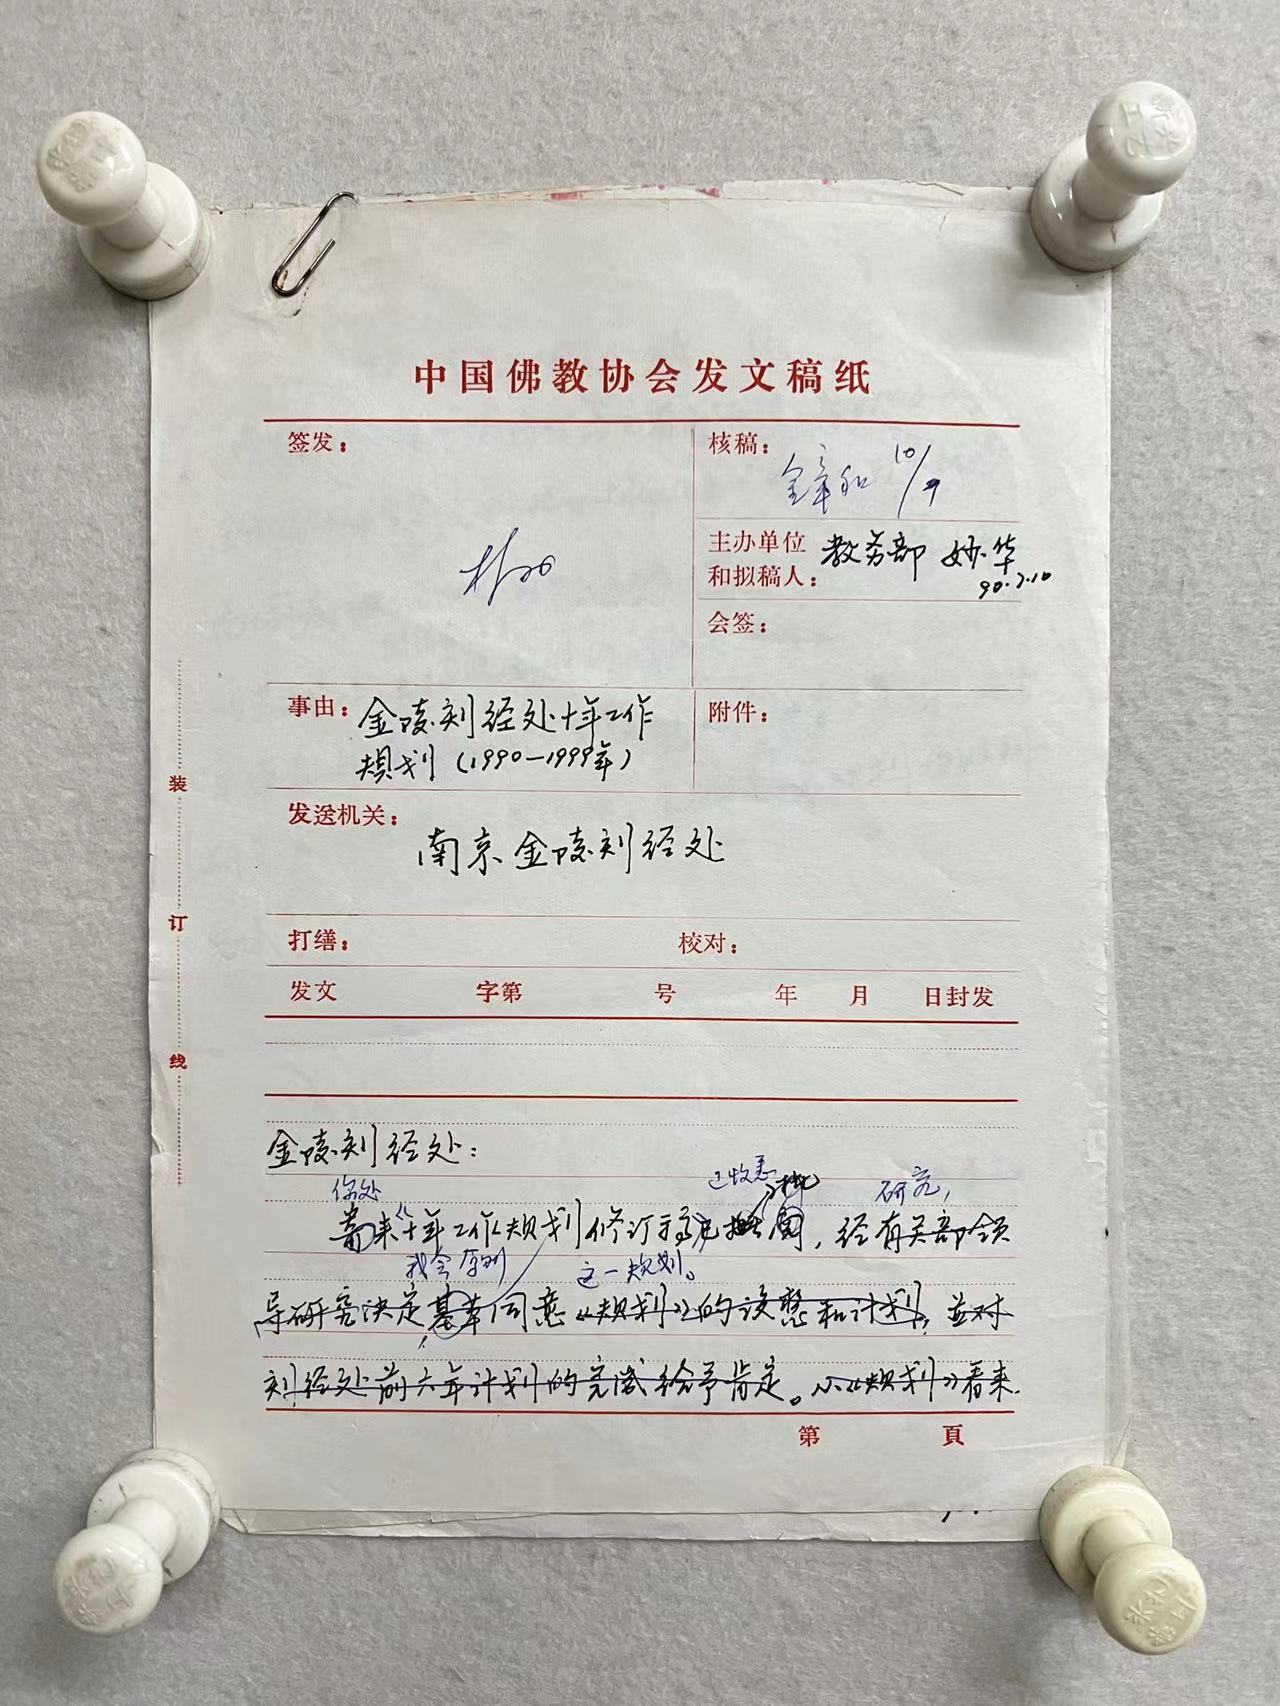 中国佛教协会发文稿纸
签发：
核稿：
10/9
主办单位 教务部 妙华
和拟稿人：
90.7.10
会签：
事由：金陵刻经处十年工作
规划（1990—1999年）
附件：
发送机关：
南京金陵刻经处
打缮： 校对：
发文 字第 号 年 月 日封发
装
订
线
金陵刻经处：
你处 已收悉 研究，
寄来《十年工作规划》修订稿已 阅，经有关部领
我会原则 这一规划。
导研究决定基本同意《规划》的设想和计划，並对
刻经处前六年计划的完成给予肯定。从《规划》看来
第 頁